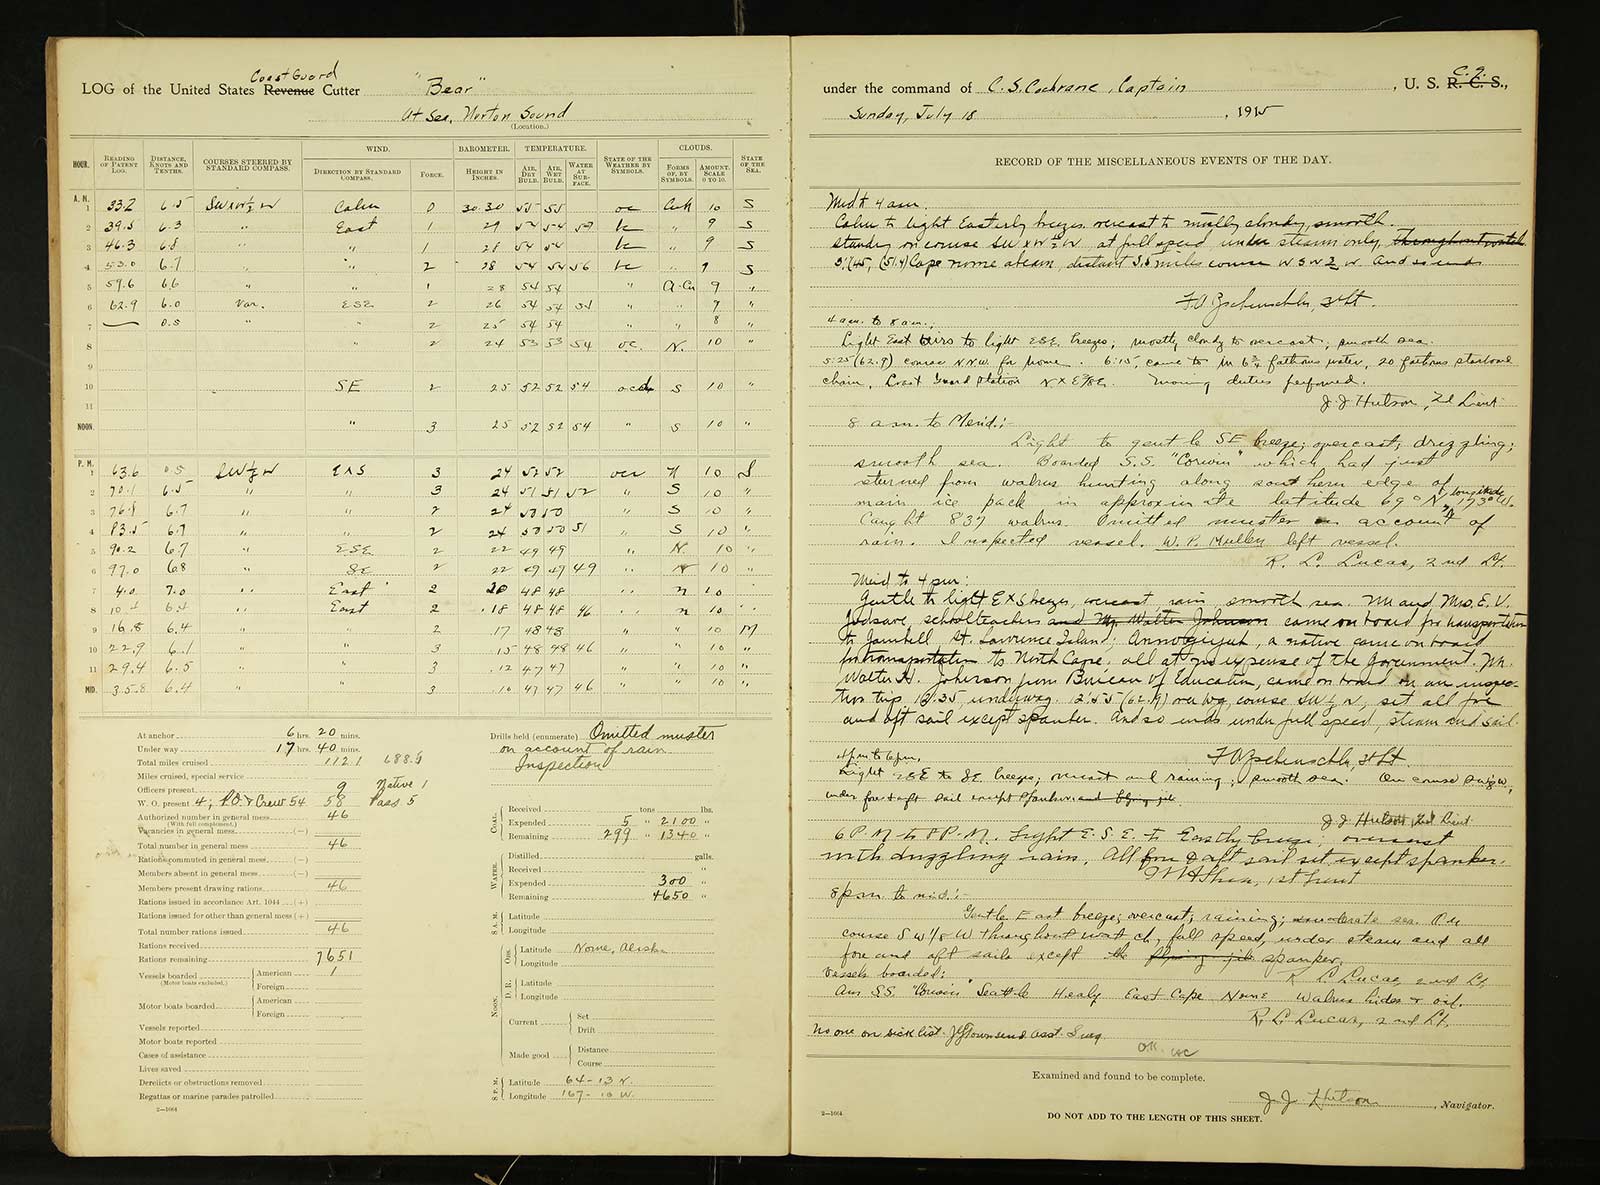 Coast Guard
LOG of the United States Revenue Cutter "Bear"
At Sea, Norton Sound
(Location.)
HOUR. READING OF PATENT LOG. DISTANCE, KNOTS AND TENTHS. COURSES STEERED BY STANDARD COMPASS. WIND. DIRECTION BY STANDARD COMPASS. FORCE. BAROMETER. HEIGHT IN INCHES. TEMPERATURE. AIR, DRY BULB. AIR, WET BULB. WATER AT SURFACE. STATE OF THE WEATHER BY SYMBOLS. CLOUDS. FORMS OF, BY SYMBOLS. AMOUNT, SCALE 0 TO 10. STATE OF THE SEA.
A. M.
1 33.2 6.5 SWxW½W Calm 0 30.30 55 55 oc 10 S
2 39.5 6.3 " East 1 29 54 54 " 9 S
3 46.3 6.8 " " 1 28 54 54 " 9 S
4 53.0 6.7 " " 2 28 54 54 56 " 9 S
5 59.6 6.6 " " 1 28 54 54 " A-Cu 9 "
6 62.9 6.0 Var. ESE 2 26 54 54 54 " " 7 "
7 0.5 " " 2 25 54 54 " " 8 "
8 " 2 24 53 53 54 oc. N. 10 "
9
10 SE 2 25 52 52 54 ocd S 10 "
11
NOON. " 3 25 52 52 54 " S 10 "
P. M.
1 63.6 0.5 SW½W ExS 3 24 52 52 ocr N 10 S
2 70.1 6.5 " " 3 24 51 51 52 " S 10 "
3 76.8 6.7 " " 2 24 50 50 " S 10 "
4 83.5 6.7 " " 2 24 50 50 51 " S 10 "
5 90.2 6.7 " ESE 2 22 49 49 " N. 10 "
6 97.0 6.8 " SE 2 22 49 49 49 " N 10 "
7 4.0 7.0 " East 2 20 48 48 " n 10 "
8 10.4 6.4 " East 2 .18 48 48 46 " n 10 "
9 16.8 6.4 " " 2 .17 48 48 " " 10 M
10 22.9 6.1 " " 3 .15 48 48 46 " " 10 "
11 29.4 6.5 " " 3 .12 47 47 " " 10 "
MID. 35.8 6.4 " " 3 .10 47 47 46 " " 10 "
At anchor 6 hrs. 20 mins.
Under way 17 hrs. 40 mins.
Total miles cruised 112.1
Miles cruised, special service
Officers present 9 Native 1
W. O. present 4; P.O. & Crew 54 58 Pass 5
Authorized number in general mess 46
(With full complement.)
Vacancies in general mess (—)
Total number in general mess 46
Rations commuted in general mess (—)
Members absent in general mess (—)
Members present drawing rations 46
Rations issued in accordance Art. 1044 (+)
Rations issued for other than general mess (+)
Total number rations issued 46
Rations received
Rations remaining 7651
Vessels boarded American 1
(Motor boats excluded.) Foreign
Motor boats boarded American
Foreign
Vessels reported
Motor boats reported
Cases of assistance
Lives saved
Derelicts or obstructions removed
Regattas or marine parades patrolled
2—1064
Drills held (enumerate) Omitted muster
on account of rain.
Inspection
COAL. Received tons lbs.
Expended 5 " 2100 "
Remaining 299 " 1340 "
WATER. Distilled galls.
Received "
Expended 300 "
Remaining 4650 "
8 A.M. Latitude
Longitude
NOON. Obs. Latitude Nome, Alaska
Longitude
D. R. Latitude
Longitude
Current Set
Drift
Made good Distance
Course
8 P.M. Latitude 64-13 N.
Longitude 167-10 W.
under the command of C. S. Cochrane, Captain, U. S. R. C. S.,
C. G.
Sunday, July 18, 1915
RECORD OF THE MISCELLANEOUS EVENTS OF THE DAY.
Mid to 4 am.
Calm to light Easterly breezes, overcast to mostly cloudy, smooth.
Standing on course SW x W ½ W at full speed under steam only, throughout watch
3:45, (51.4) Cape Nome abeam, distant 3.5 miles course WSW½W. And so ends
3d Lt.
4 a.m. to 8 a.m.;
Light East airs to light ESE breezes; mostly cloudy to overcast; smooth sea.
5:25 (62.9) course NNW. for Nome. 6:15, came to in 6¾ fathoms water, 20 fathoms starboard
chain, Coast Guard Station N x E⅞E. Morning duties performed.
J. J. Hutson, 2d Lieut.
8 a.m. to Merid.:-
Light to gentle SE breeze; overcast; drizzling;
smooth sea. Boarded S.S. "Corwin" which had just
returned from walrus hunting along southern edge of
main ice pack in approximate latitude 69° N, longitude 173° W.
Caught 837 walrus. Omitted muster on account of
rain. Inspected vessel. W. P. Mulley left vessel.
R. L. Lucas, 2nd Lt.
Merid to 4 pm:
Gentle to light ExS breezes, overcast, rain, smooth sea. Mr. and Mrs. E. V.
schoolteachers and Mr. Walter Johnson came on board for transportation
to Gambell, St. Lawrence Island; a native came on board
for transportation to North Cape. all at no expense of the government. Mr.
Walter H. Johnson from Bureau of Education, came on board on an inspec-
tion trip. 12:35, underway. course SW½W, set all fore
and aft sail except spanker. And so ends under full speed, steam and sail.
3d Lt.
4 p.m. to 6 p.m.
Light ESE to SE breeze; overcast and raining; smooth sea. On course SW½W,
under fore & aft sail except spanker and flying jib.
J J Hutson, 2nd Lieut.
6 P.M. to 8 P.M. Light E.S.E. to Easterly breeze, overcast
with drizzling rain. All fore & aft sail set except spanker.
1st Lieut
8 p.m. to mid.:-
Gentle East breeze; overcast; raining; moderate sea. On
course SW⅛W throughout watch, full speed, under steam and all
fore and aft sails except the flying jib spanker.
R L Lucas, 2nd Lt.
Vessels boarded:
Am S.S. "Corwin" Seattle Healy East Cape Nome Walrus hides & oil.
R. L. Lucas, 2nd Lt.
No one on sick list. Townsend Asst. Surg
OK. CSC
Examined and found to be complete.
J. J. Hutson, Navigator.
2—1064
DO NOT ADD TO THE LENGTH OF THIS SHEET.